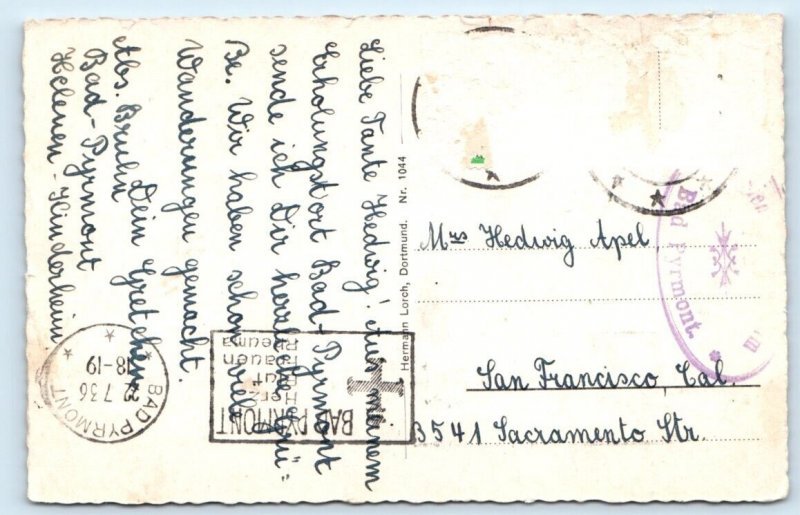 Liebe Tante Hedwig! Aus meinem
Erholungsort Bad-Pyrmont
sende ich Dir herzliche Grü-
ße. Wir haben schon viele
Wanderungen gemacht.
Dein Gretchen
Abs. Bruhn
Bad-Pyrmont
Helenen-Kinderheim
Hermann Lorch, Dortmund. Nr. 1044
Mrs Hedwig Apel
San Francisco Cal.
3541 Sacramento Str.
BAD PYRMONT
Herz
Blut
Frauen
Rheuma
BAD PYRMONT
22.7.36
18-19
Bad Pyrmont.